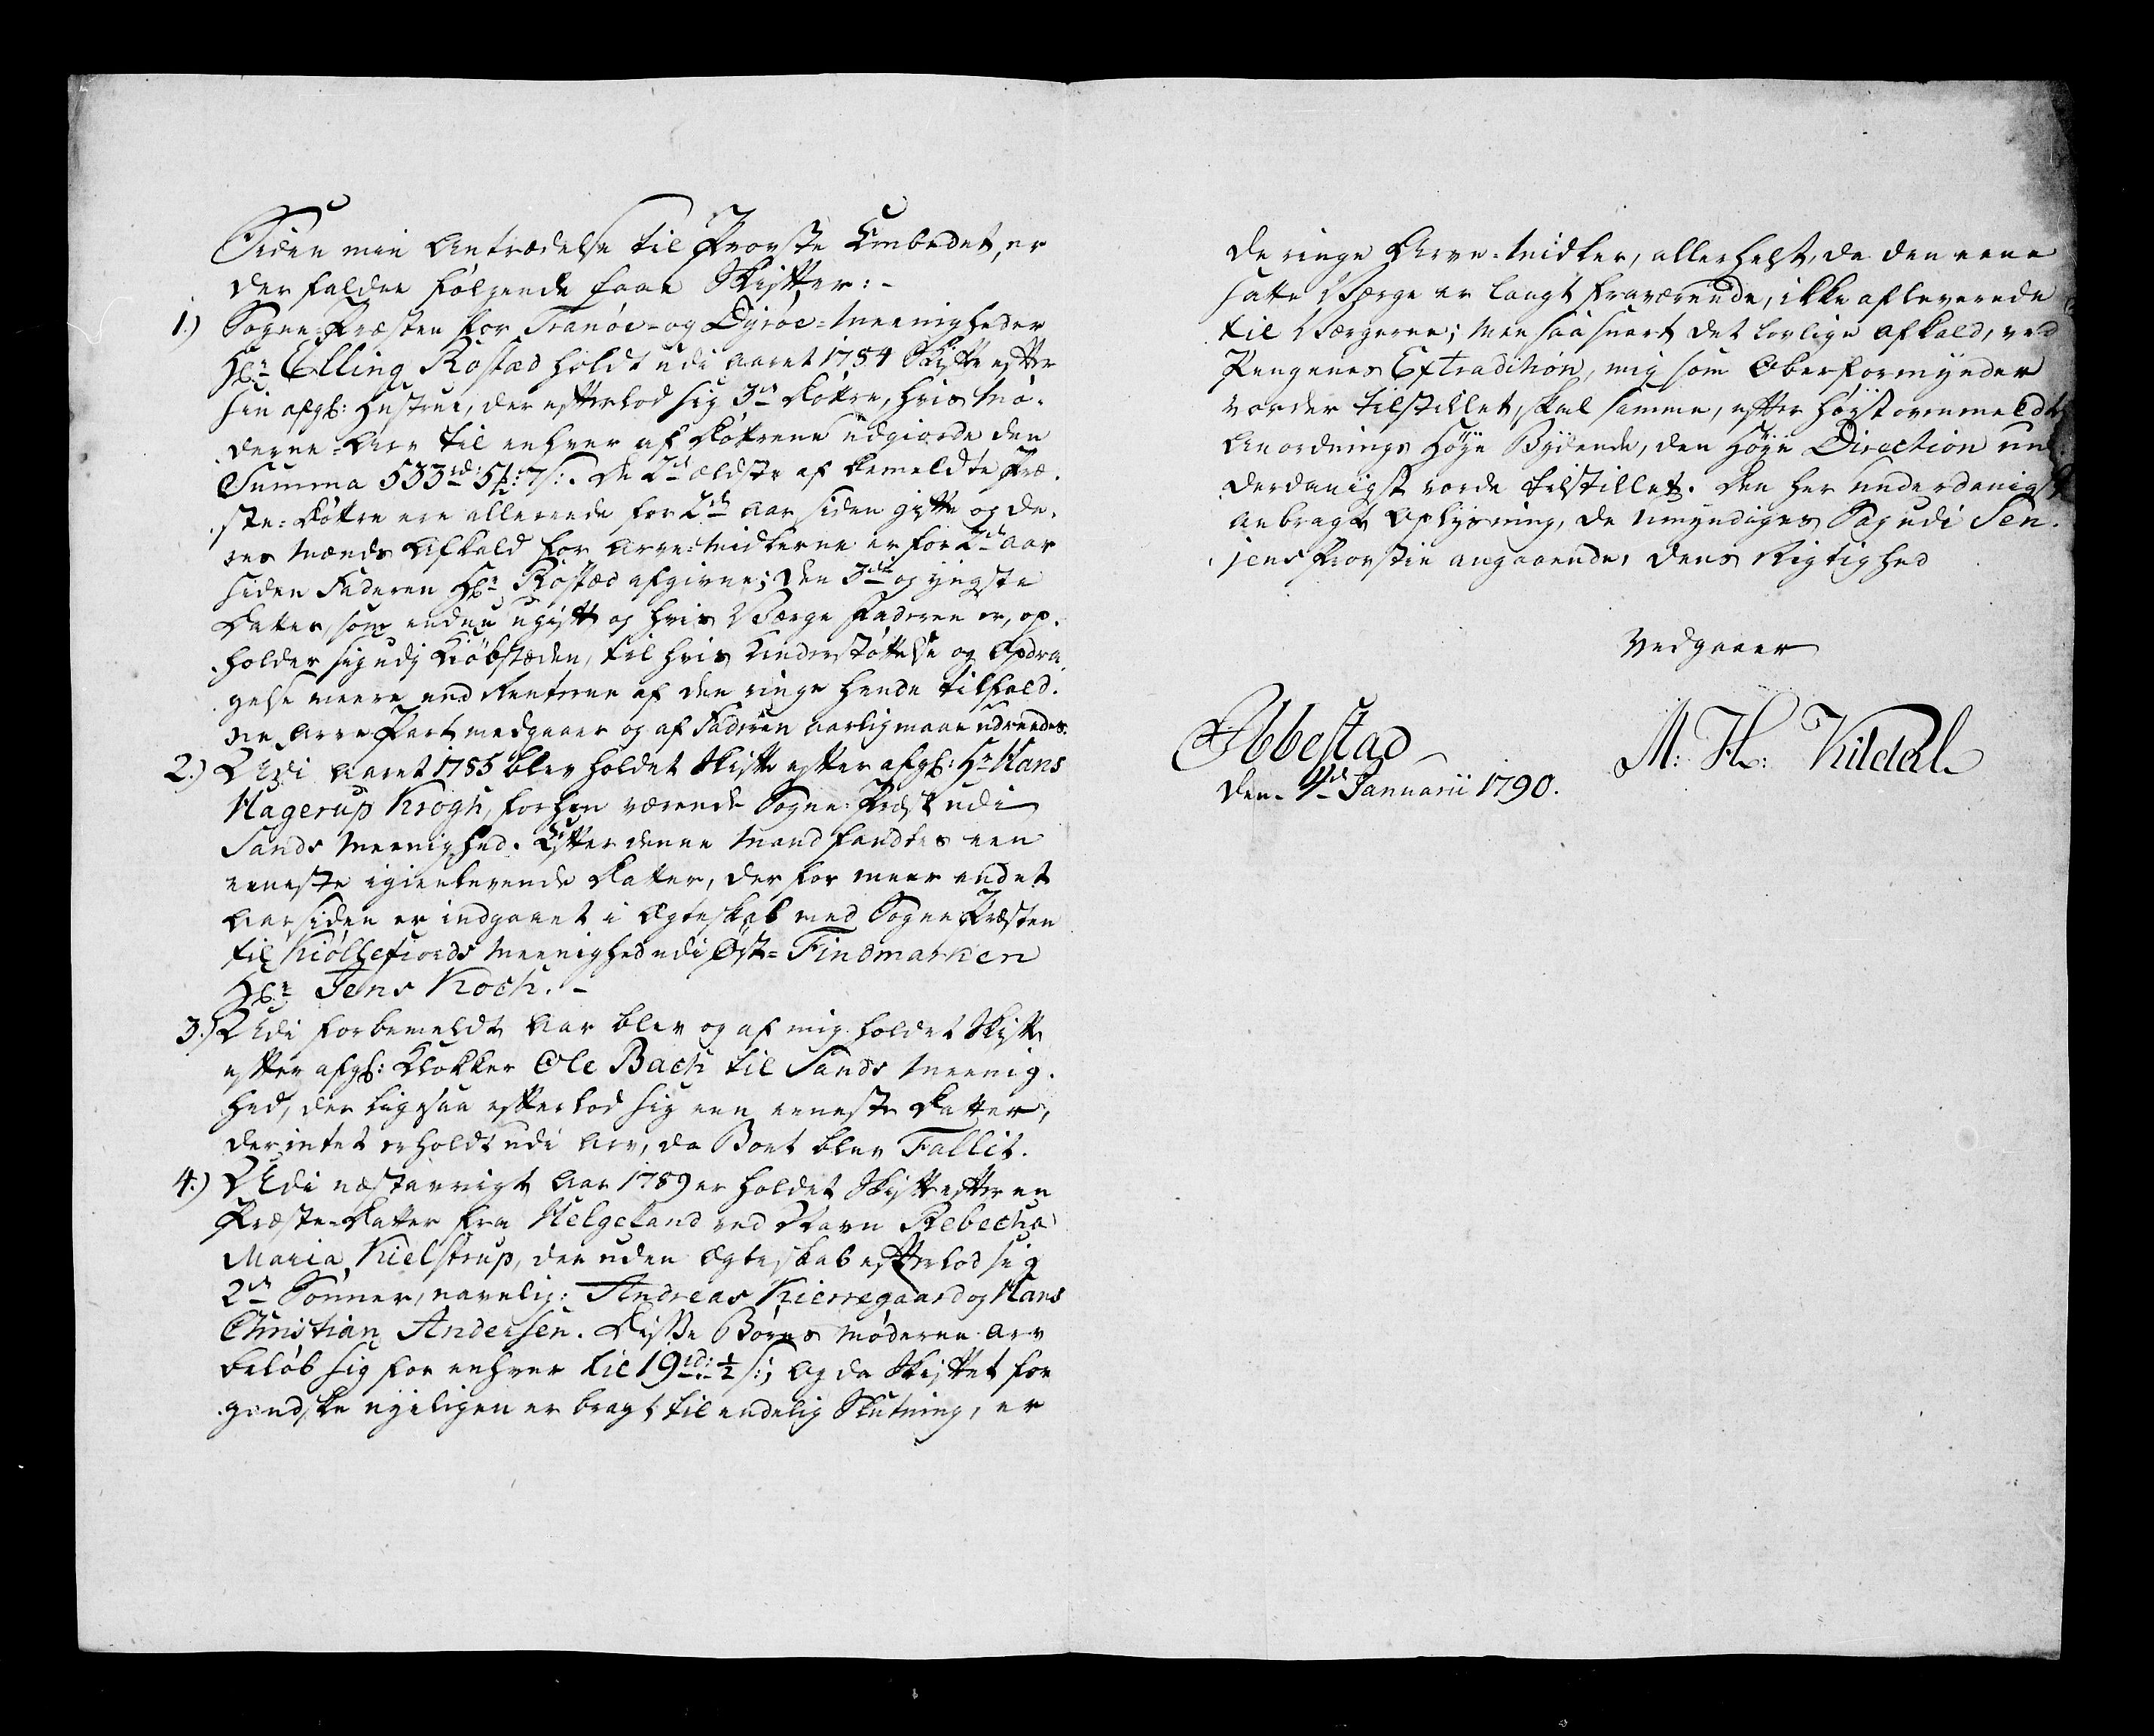 Siden min Antrædelse til Provste Embedet, er
der falden følgende faae Skifter: -
1.) Sogne-Præsten for Tranöe- og Dyröe-Meenigheder
Hr Elling Rostad holdt udi Aaret 1784 Skifte efter
sin afgl: Hustrue, der efterlod sig 3de Døttre, hvis Mö-
derne-Arv til enhver af Døttrene udgiorde den
Summa 533rd: 5 7s:. De 2de ældste af bemeldte Præ-
ste-Døttre ere allereede for 2de Aar siden gifte og de-
res Mænds Afkald for Arve-Midlerne er for 2de Aar
siden Faderen Hr Rostad afgivne; den 3die og yngste
Datter, som endnu ugift og hvis Værge Faderen er, op-
holder sig udj Kiöbstæden, til hvis Understöttelse og Opdra-
gelse meere end Renterne af den ringe hende tilfald-
ne Arve Part medgaaer og af Faderen aarlig maae udreedes.
2.) Udi Aaret 1785 blev holdet Skifte efter afgl: Hr Hans
Hagerup Krogh, forhen værende Sogne-Præst udi
Sands Meenighed. Efter denne Mand fandtes een
eeneste igienlevende Datter, der for meer end et
Aar siden er indgaaet i Ægteskab med Sogne Præsten
til Kiöllefiords Meenighed udi Öst-Findmarken
Hr Jens Koch. -
3.) Udi forbemeldte Aar blev og af mig holdet Skifte
efter afgl: Klokker Ole Bach til Sands Meenig-
hed, der ligesaa efterlod sig een eeneste Datter,
der intet erholdt udi Arv, da Boet blev Fallit.
4.) Udi næstævigt Aar 1789 er holdet Skifte efter en
Præste-Datter fra Helgeland ved Navn Rebecha
Maria Kielstrup, der uden Ægteskab efterlod sig
2de Sönner, navnlig: Andreas Kierregaard og Hans
Christian Andersen. Disse Börns Möderne Arv
belöb sig for enhver til 19rd: ½ s:; og da Skiftet for
gandske nyeligen er bragt til endelig Slutning, er
de ringe Arve-Midler, allerhelst, da den eene
satte Værge er langt fraværende, ikke afleverede
til Værgerne; men saa snart det lovlige Afkald, ved
Pengenes Extradition, mig som Overformynder
vorder tilstillet, skal samme, efter höystovenmeldte
Anordnings Höye Bydende, den Höye Direction un-
derdanigst vorde tilstillet. Den her underdanigst
anbragte Oplysning, de Umyndiges Sag udi Sen-
jens Provstie angaaende, dens Rigtighed
Vedgaaer
Ibbestad
M: H: Kildal
den 4de Januarii 1790.